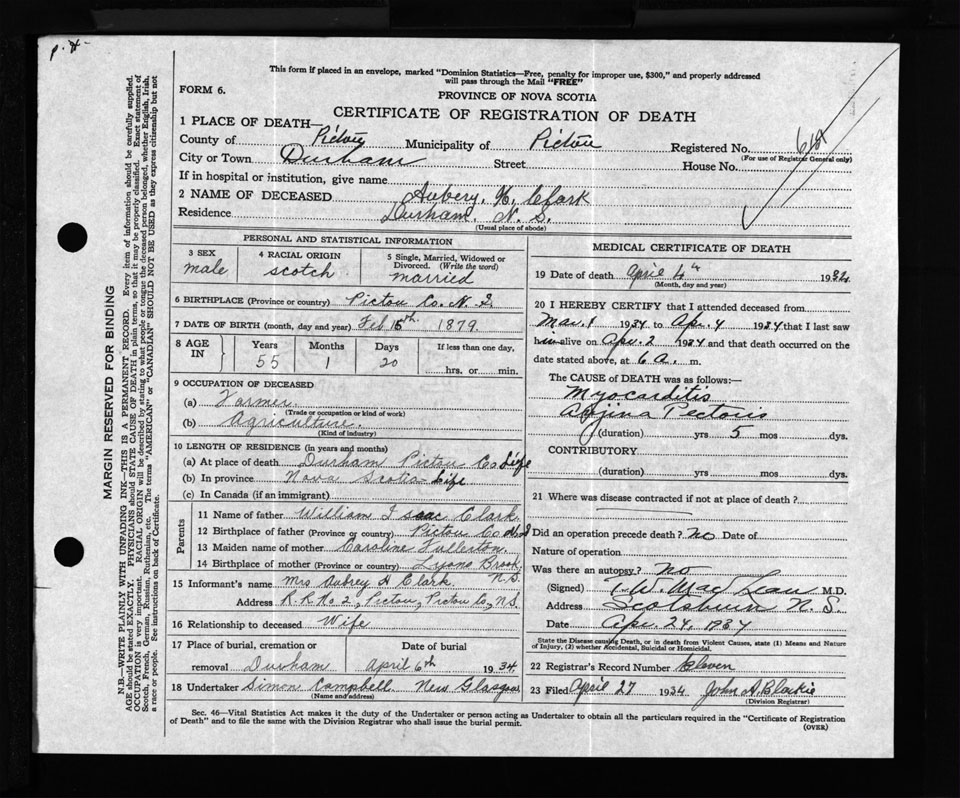 P. H.
This form if placed in an envelope, marked "Dominion Statistics—Free, penalty for improper use, $300," and properly addressed
will pass through the Mail "FREE"
FORM 6.
PROVINCE OF NOVA SCOTIA
CERTIFICATE OF REGISTRATION OF DEATH
1 PLACE OF DEATH—
County of Pictou Municipality of Pictou Registered No. 612
(For use of Registrar General only)
City or Town Durham Street House No.
If in hospital or institution, give name
2 NAME OF DECEASED Aubery. H. Clark
Residence Durham. N. S.
(Usual place of abode)
PERSONAL AND STATISTICAL INFORMATION
3 SEX male
4 RACIAL ORIGIN scotch
5 Single, Married, Widowed or Divorced. (Write the word) married
6 BIRTHPLACE (Province or country) Pictou Co. N. S.
7 DATE OF BIRTH (month, day and year) Feb 15th. 1879.
8 AGE IN Years 55 Months 1 Days 20 If less than one day, hrs. or min.
9 OCCUPATION OF DECEASED
(a) Farmer.
(Trade or occupation or kind of work)
(b) Agriculture.
(Kind of industry)
10 LENGTH OF RESIDENCE (in years and months)
(a) At place of death Durham Pictou Co Life
(b) In province Nova Scotia Life
(c) In Canada (if an immigrant)
Parents
11 Name of father William Isaac Clark.
12 Birthplace of father (Province or country) Pictou Co N S
13 Maiden name of mother Caroline Fullerton.
14 Birthplace of mother (Province or country) Lyons Brook, N.S.
15 Informant's name Mrs Aubrey H Clark.
Address R.R No 2, Pictou, Pictou Co, N.S.
16 Relationship to deceased Wife
17 Place of burial, cremation or removal Durham Date of burial April 6th 1934
18 Undertaker Simon Campbell. New Glasgow
(Name and address)
MEDICAL CERTIFICATE OF DEATH
19 Date of death April 4th 1934
(Month, day and year)
20 I HEREBY CERTIFY that I attended deceased from
Mar. 1 1934 to Apr. 4 1934 that I last saw
him alive on Apr. 2 1934 and that death occurred on the
date stated above, at 6 a. m.
The CAUSE of DEATH was as follows:—
Myocarditis
Angina Pectoris
(duration) yrs 5 mos dys.
CONTRIBUTORY
(duration) yrs. mos. dys.
21 Where was disease contracted if not at place of death?
Did an operation precede death? No Date of
Nature of operation
Was there an autopsy? No
(Signed) M.D.
Address Scotsburn N. S.
Date Apr. 24, 1934
State the Disease causing Death, or in death from Violent Causes, state (1) Means and Nature
of Injury, (2) whether Accidental, Suicidal or Homicidal.
22 Registrar's Record Number Eleven
23 Filed April 27 1934 John A. Blaikie
(Division Registrar)
Sec. 46—Vital Statistics Act makes it the duty of the Undertaker or person acting as Undertaker to obtain all the particulars required in the "Certificate of Registration
of Death" and to file the same with the Division Registrar who shall issue the burial permit.
(OVER)
MARGIN RESERVED FOR BINDING
N.B.—WRITE PLAINLY WITH UNFADING INK—THIS IS A PERMANENT RECORD. Every item of information should be carefully supplied.
AGE should be stated EXACTLY. PHYSICIANS should STATE CAUSE OF DEATH in plain terms, so that it may be properly classified. Exact statement of
OCCUPATION is very important. RACIAL ORIGIN will be described by stating to what people or tongue the deceased person belonged, whether English, Irish,
Scotch, French, German, Russian, Ruthenian, etc. The terms "AMERICAN" or "CANADIAN" SHOULD NOT BE USED as they express citizenship but not
a race or people. See instructions on back of Certificate.